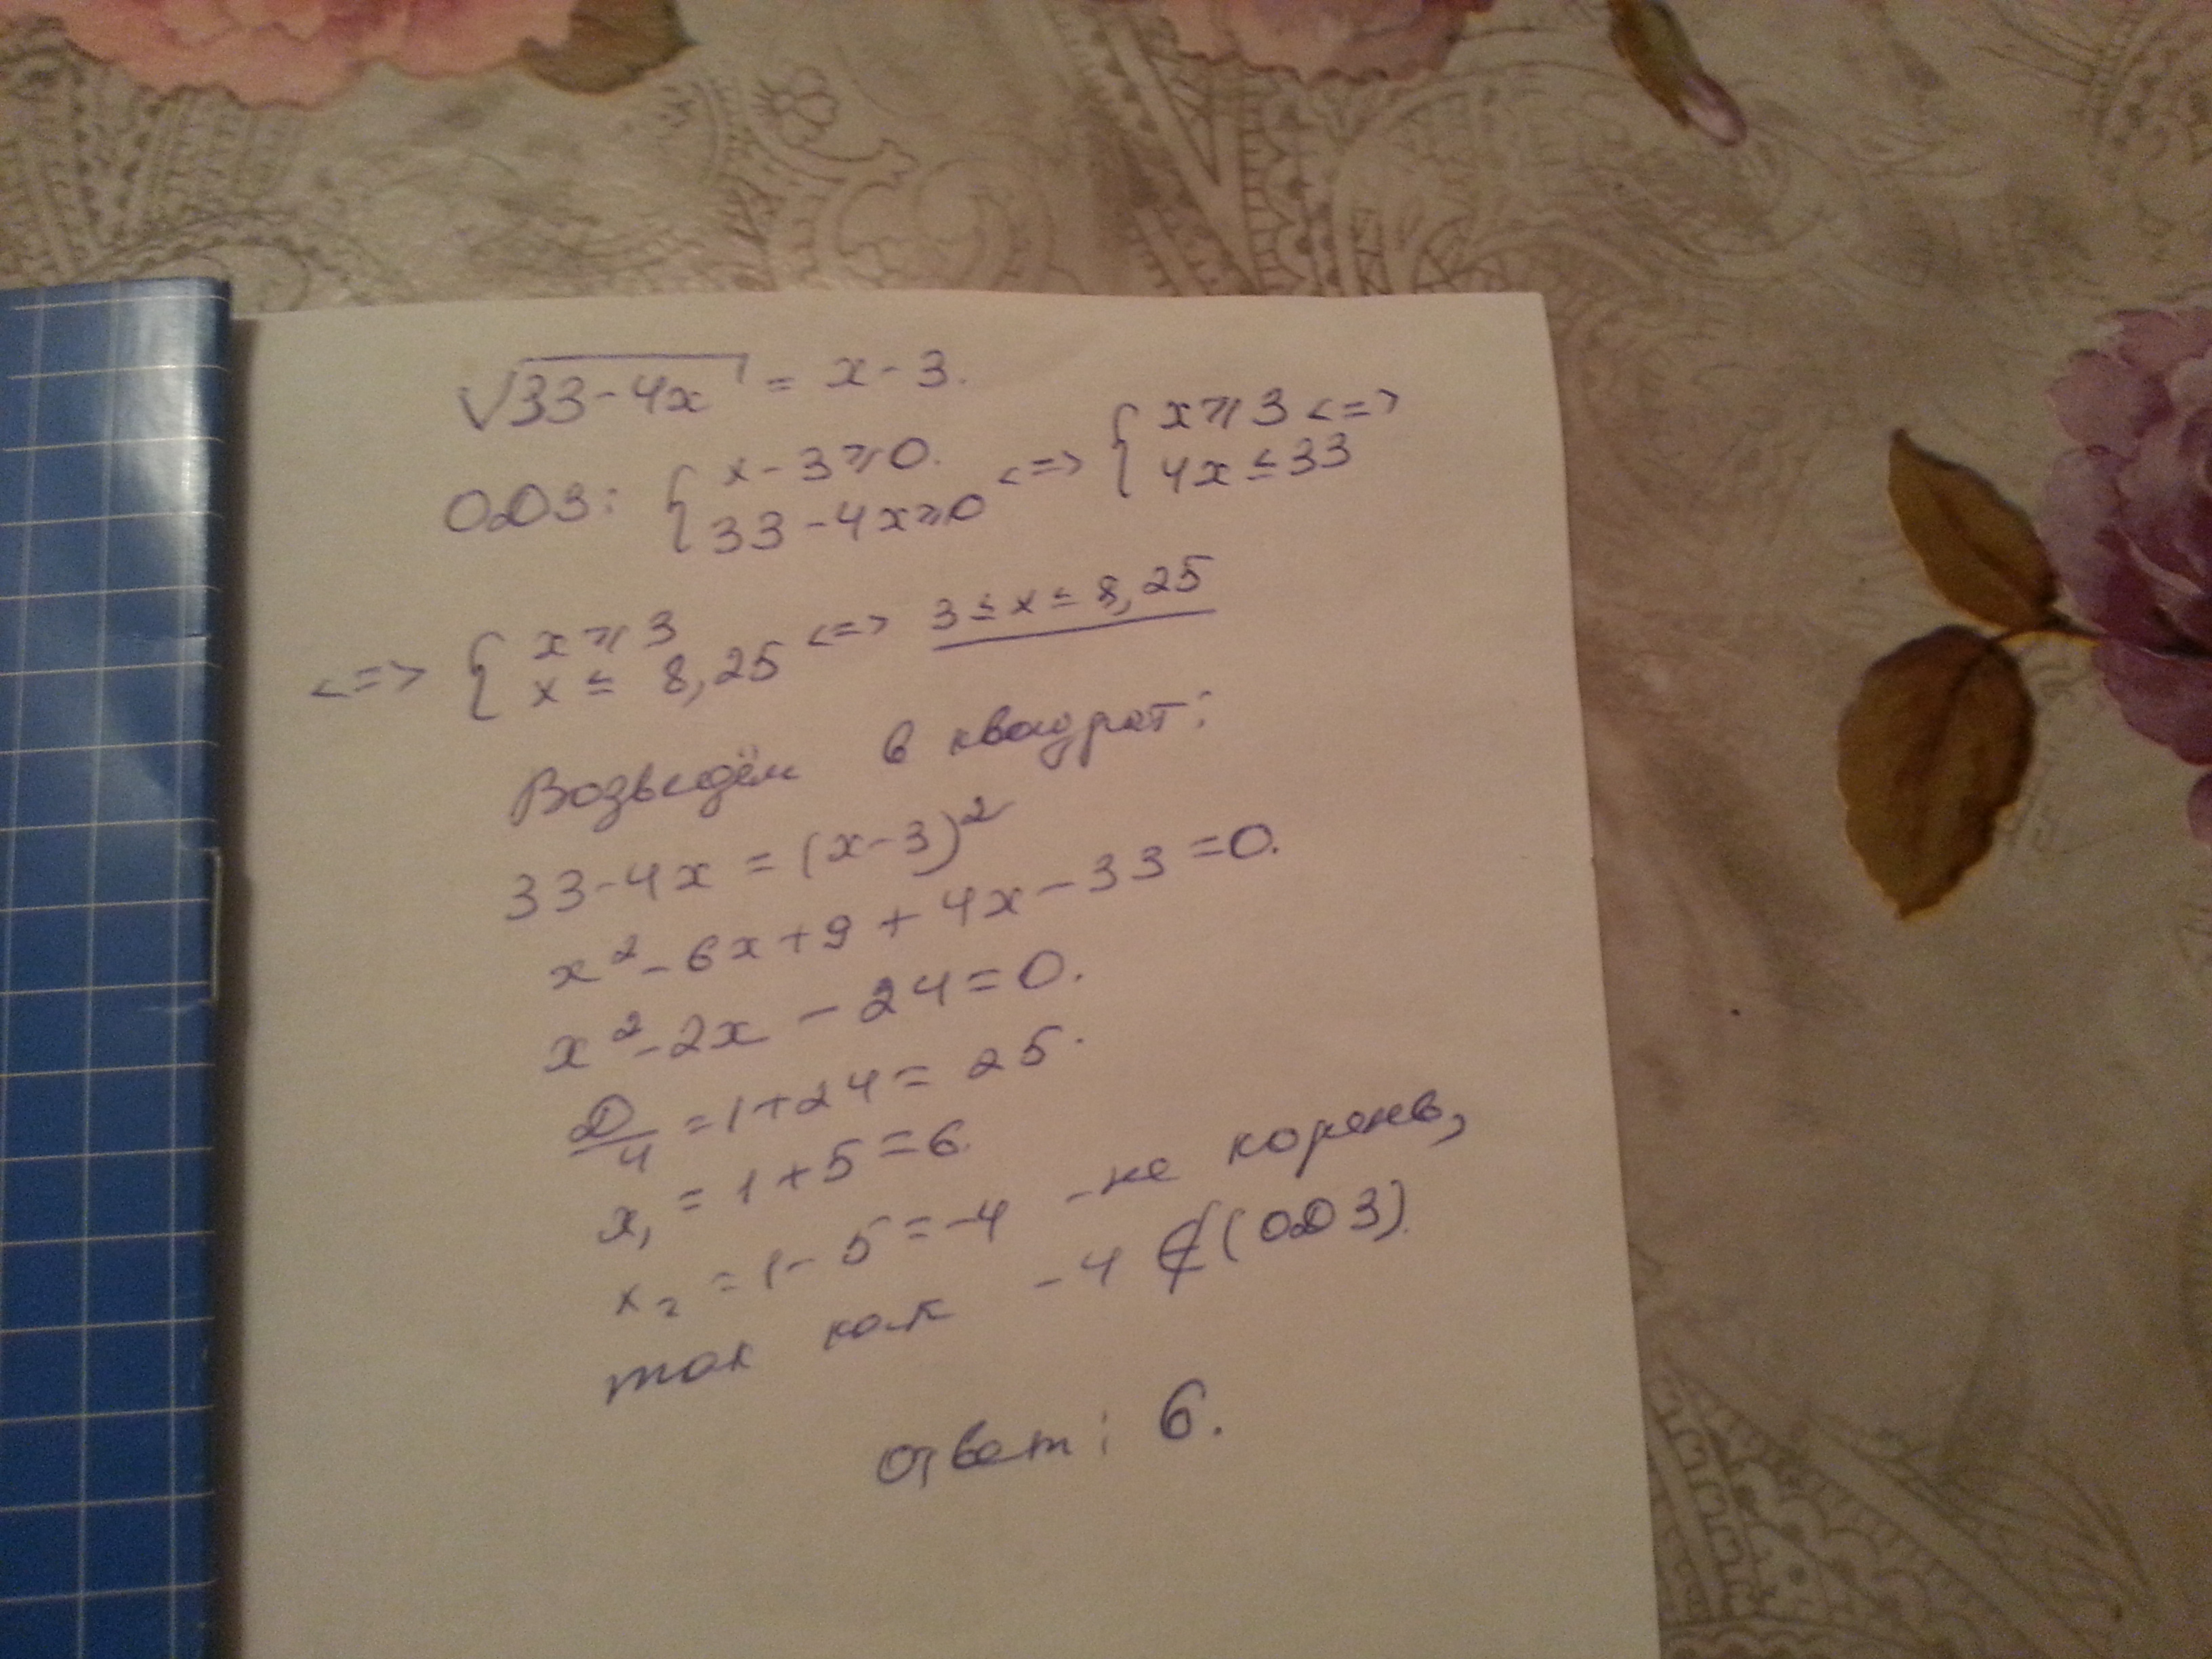 √33-4x = x-3.
ОДЗ: { x-3⩾0. 33-4x⩾0 <=> { x⩾3 4x≤33 <=>
<=> { x⩾3 x≤8,25 <=> 3≤x≤8,25
Возведём в квадрат:
33-4x = (x-3)²
x²-6x+9+4x-33=0.
x²-2x-24=0.
D/4=1+24=25.
x₁=1+5=6.
x₂=1-5=-4 -не корень,
так как -4 ∉ (ОДЗ).
Ответ: 6.